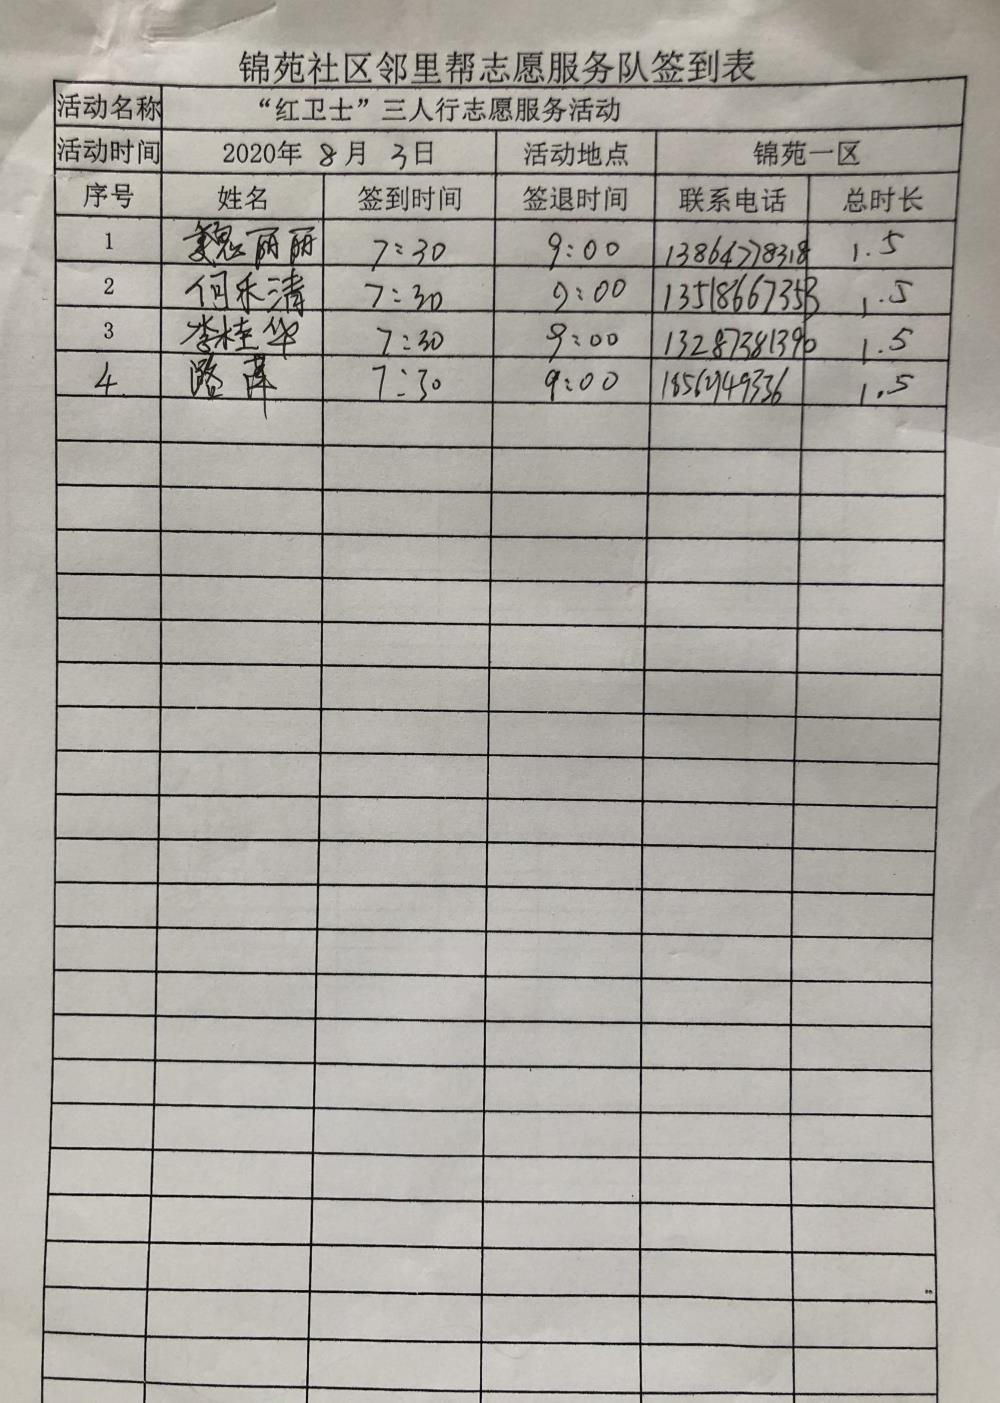 锦苑社区邻里帮志愿服务队签到表
活动名称 “红卫士”三人行志愿服务活动
活动时间 2020年 8月 3日 活动地点 锦苑一区
序号 姓名 签到时间 签退时间 联系电话 总时长
1 魏丽丽 7:30 9:00 13864778318 1.5
2 何永清 7:30 9:00 13518667353 1.5
3 李桂华 7:30 9:00 13287381390 1.5
4 路萍 7:30 9:00 1.5